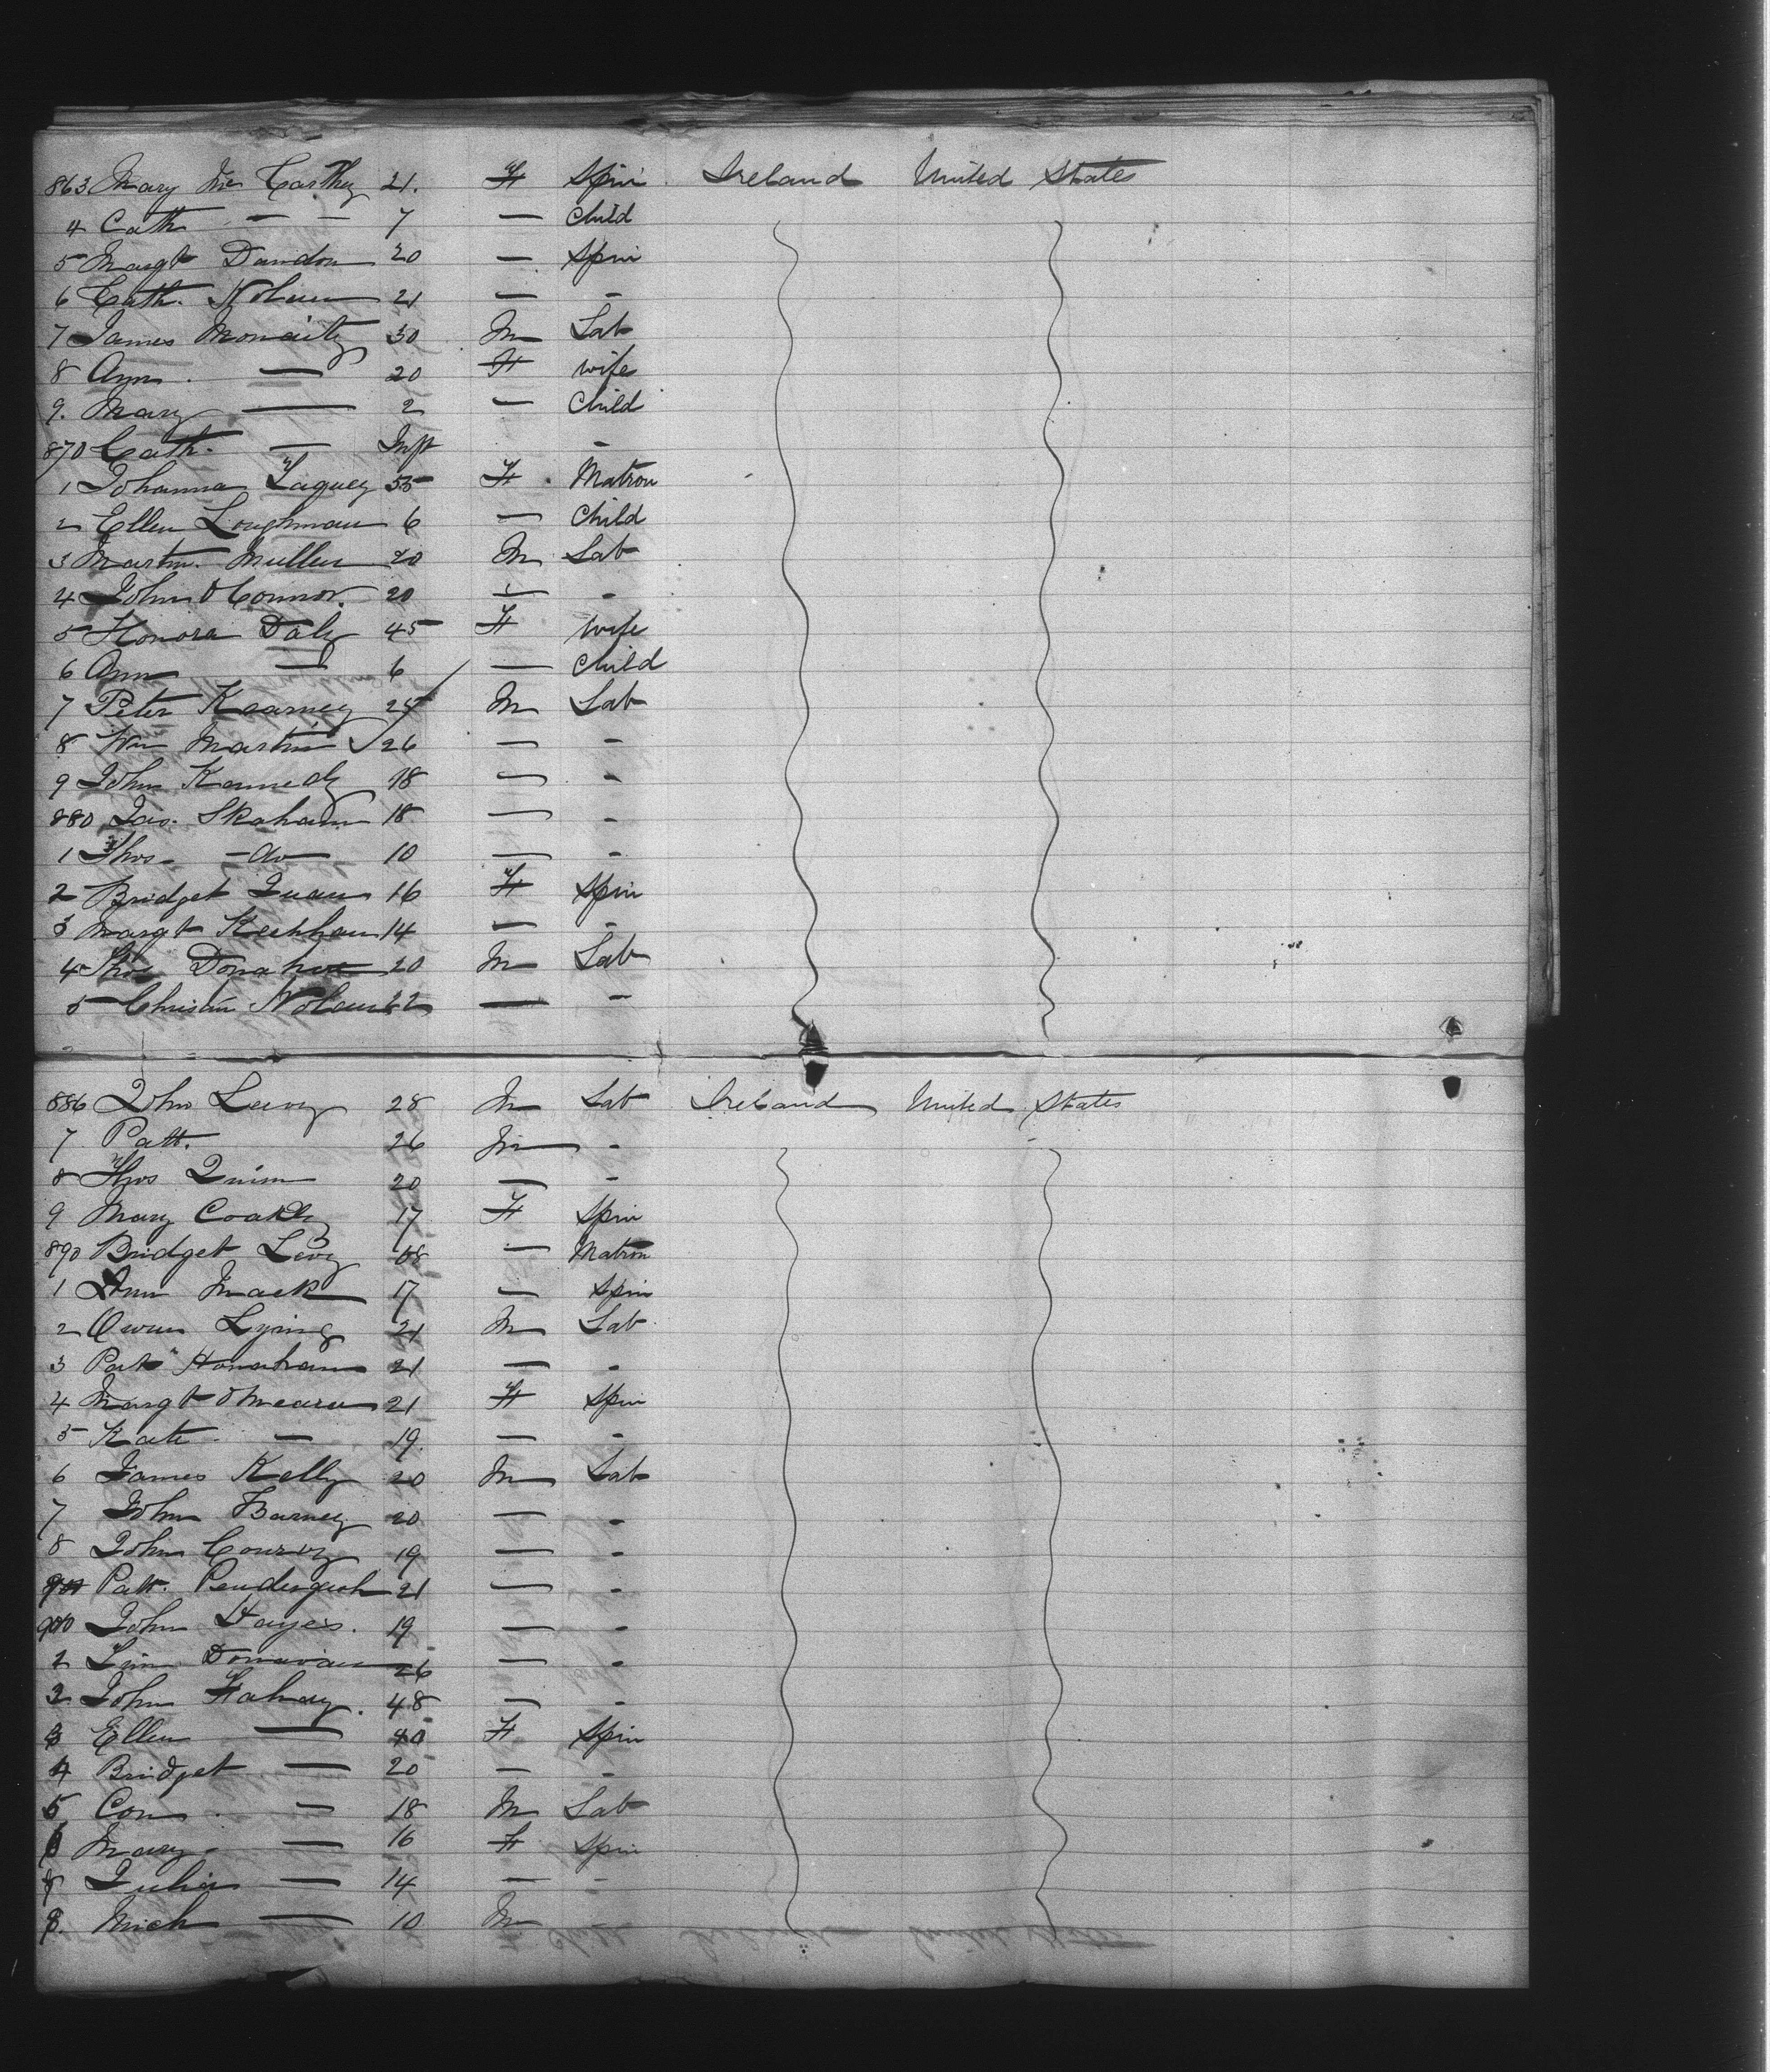 863 Mary Mc Carthy 21. F Spin Ireland United States
4 Cath — — 7 — Child
5 Margt 20 — Spin
6 Cath. Nolan 21 — -
7 James 30 M Lab
8 Ann. — 20 F wife
9. Mary — 2 — Child
870 Cath. — Inft -
1 Johanna 55 F. Matron
2 Ellen Loughman 6 — Child
3 Martin Mullen 20 M Lab
4 John O Connor. 20 — -
5 Honora Daly 45 F wife
6 Ann — 6 — Child
7 Peter Kearney 25 M Lab
8 Wm Martin 26 — -
9 John Kennedy 18 — -
880 Jas. Skahan 18 — -
1 Thos - do - 10 — -
2 Bridget Quan 16 F Spin
3 Margt 14 — -
4 Thos Donahue 20 M Lab
5 Nolan 22 — -
886 John Leavy 28 M Lab Ireland United States
7 Patt. 26 M -
8 Thos Quinn 20 — -
9 Mary Coakley 17 F Spin
890 Bridget Levy — Matron
1 Ann Mack 17 — Spin
2 Owen 21 M Lab
3 Patk 21 — -
4 Margt O Meara 21 F Spin
5 Kate — 19. — -
6 James Kelly 20 M Lab
7 John 20 — -
8 John Conroy 19 — -
Patt. Pendergast 21 — -
900 John Hayes. 19 — -
2 Donavan 26 — -
2 John Fahay. 48 — -
3 Ellen — 40 F Spin
4 Bridget — 20 — -
5 Con — 18 M Lab
6 Mary — 16 F Spin
Julia — 14 — -
8. Mich — 10 M -